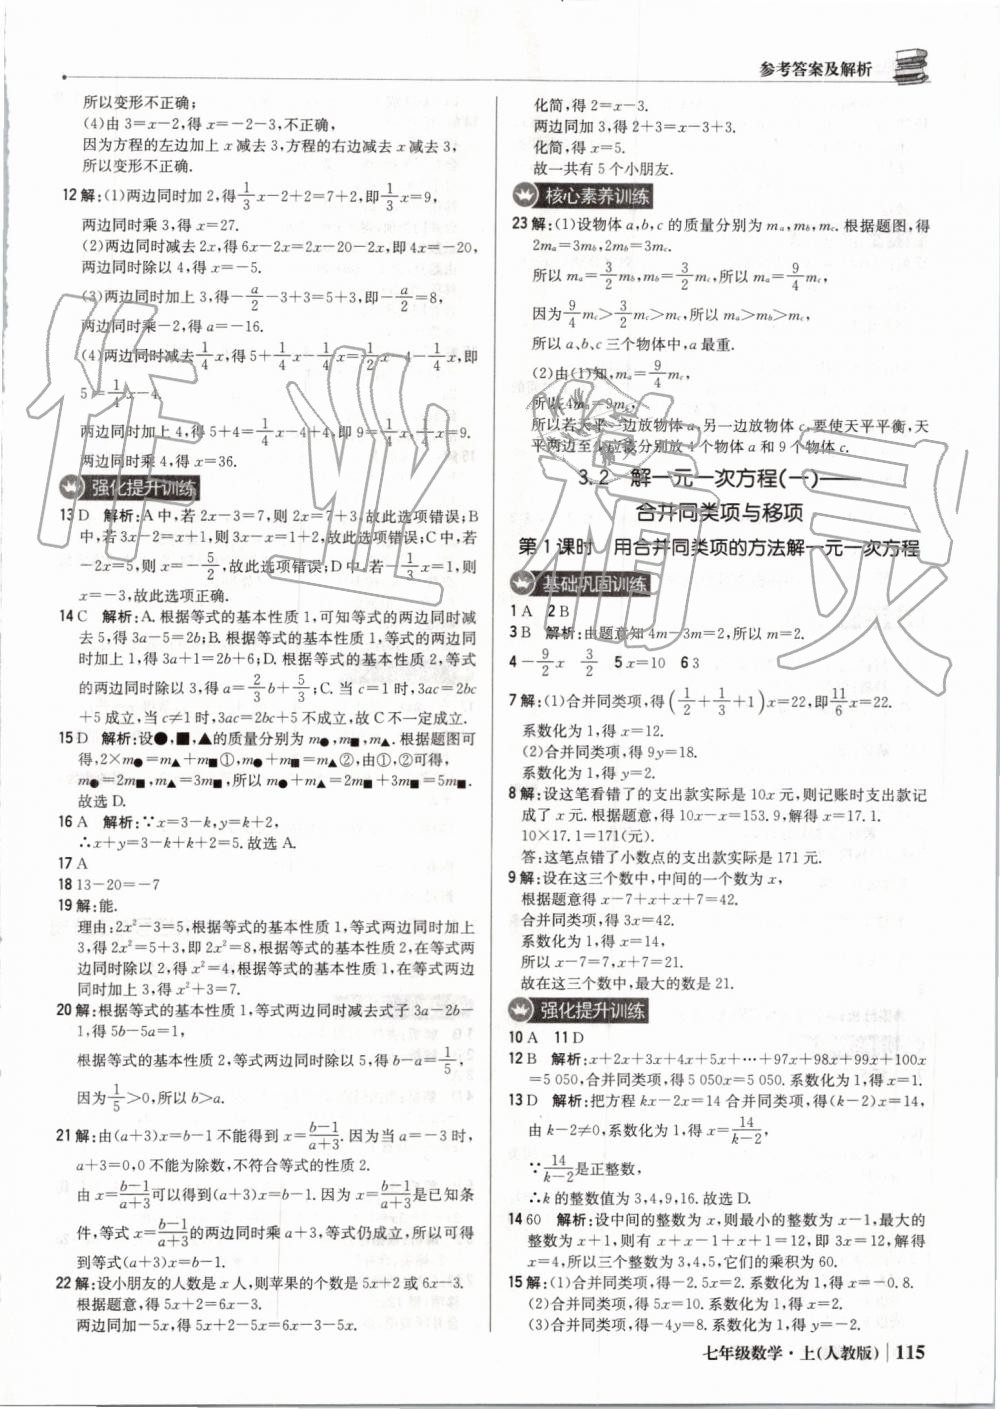 参考答案及解析
所以变形不正确;
(4)由 3=x-2,得 x=-2-3,不正确,
因为方程的左边加上 x 减去 3,方程的右边减去 x 减去 3,
所以变形不正确.
12 解:(1)两边同时加 2,得 1/3 x-2+2=7+2,即 1/3 x=9,
两边同时乘 3,得 x=27.
(2)两边同时减去 2x,得 6x-2x=2x-20-2x,即 4x=-20,
两边同时除以 4,得 x=-5.
(3)两边同时加上 3,得 -a/2-3+3=5+3,即 -a/2=8,
两边同时乘-2,得 a=-16.
(4)两边同时减去 1/4 x,得 5+1/4 x-1/4 x=1/2 x-4-1/4 x,即
5=1/4 x-4.
两边同时加上 4,得 5+4=1/4 x-4+4,即 9=1/4 x,1/4 x=9.
两边同时乘 4,得 x=36.
强化提升训练
13 D 解析:A 中,若 2x-3=7,则 2x=7+3,故此选项错误;B
中,若 3x-2=x+1,则 3x-x=1+2,故此选项错误;C 中,若
-2x=5,则 x=-5/2,故此选项错误;D 中,若-1/3 x=1,则
x=-3,故此选项正确.
14 C 解析:A. 根据等式的基本性质 1,可知等式的两边同时减
去 5,得 3a-5=2b;B. 根据等式的基本性质 1,等式的两边同
时加上 1,得 3a+1=2b+6;D. 根据等式的基本性质 2,等式
的两边同时除以 3,得 a=2/3 b+5/3;C. 当 c=1 时,3ac=2bc
+5 成立,当 c≠1 时,3ac=2bc+5 不成立,故 C 不一定成立.
15 D 解析:设●,■,▲的质量分别为 m●,m■,m▲. 根据题图可
得,2×m●=m▲+m■①,m●+m■=m▲②,由①,②可得,
m●=2m■,m▲=3m■,所以 m●+m▲=2m■+3m■=5m■.
故选 D.
16 A 解析:∵x=3-k,y=k+2,
∴x+y=3-k+k+2=5. 故选 A.
17 A
18 13-20=-7
19 解:能.
理由:2x²-3=5,根据等式的基本性质 1,等式两边同时加上
3,得 2x²=5+3,即 2x²=8,根据等式的基本性质 2,在等式两
边同时除以 2,得 x²=4,根据等式的基本性质 1,在等式两边
同时加上 3,得 x²+3=7.
20 解:根据等式的基本性质 1,等式两边同时减去式子 3a-2b-
1,得 5b-5a=1,
根据等式的基本性质 2,等式两边同时除以 5,得 b-a=1/5,
因为 1/5>0,所以 b>a.
21 解:由(a+3)x=b-1 不能得到 x=(b-1)/(a+3). 因为当 a=-3 时,
a+3=0,0 不能为除数,不符合等式的性质 2.
由 x=(b-1)/(a+3)可以得到(a+3)x=b-1. 因为 x=(b-1)/(a+3)是已知条
件,等式 x=(b-1)/(a+3)的两边同时乘 a+3,等式仍成立,所以可得
到等式(a+3)x=b-1.
22 解:设小朋友的人数是 x 人,则苹果的个数是 5x+2 或 6x-3.
根据题意,得 5x+2=6x-3.
两边同加-5x,得 5x+2-5x=6x-3-5x.
化简,得 2=x-3.
两边同加 3,得 2+3=x-3+3.
化简,得 x=5.
故一共有 5 个小朋友.
核心素养训练
23 解:(1)设物体 a,b,c 的质量分别为 ma,mb,mc. 根据题图,得
2ma=3mb,2mb=3mc.
所以 ma=3/2 mb,mb=3/2 mc,所以 ma=9/4 mc,
因为 9/4 mc>3/2 mc>mc,所以 ma>mb>mc.
所以 a、b、c 三个物体中,a 最重.
(2)由(1)知,ma=9/4 mc,
所以 4ma=9mc,
所以若天平一边放物体 a,另一边放物体 c,要使天平平衡,天
平两边至少应该分别放 4 个物体 a 和 9 个物体 c.
3.2 解一元一次方程(一)——
合并同类项与移项
第 1 课时 用合并同类项的方法解一元一次方程
基础巩固训练
1 A 2 B
3 B 解析:由题意知 4m-3m=2,所以 m=2.
4 -9/2 x 3/2 5 x=10 6 3
7 解:(1)合并同类项,得(1/2+1/3+1)x=22,即 11/6 x=22.
系数化为 1,得 x=12.
(2)合并同类项,得 9y=18.
系数化为 1,得 y=2.
8 解:设这笔看错了的支出款实际是 10x 元,则记账时支出款记
成了 x 元. 根据题意,得 10x-x=153.9,解得 x=17.1.
10×17.1=171(元).
答:这笔点错了小数点的支出款实际是 171 元.
9 解:设在这三个数中,中间的一个数为 x,
根据题意得 x-7+x+x+7=42.
合并同类项,得 3x=42.
系数化为 1,得 x=14,
所以 x-7=7,x+7=21.
故在这三个数中,最大的数是 21.
强化提升训练
10 A 11 D
12 B 解析:x+2x+3x+4x+5x+…+97x+98x+99x+100x
=5 050,合并同类项,得 5 050x=5 050. 系数化为 1,得 x=1.
13 D 解析:把方程 kx-2x=14 合并同类项,得(k-2)x=14,
由 k-2≠0,系数化为 1,得 x=14/(k-2),
∵14/(k-2)是正整数,
∴k 的整数值为 3,4,9,16. 故选 D.
14 60 解析:设中间的整数为 x,则最小的整数为 x-1,最大的
整数为 x+1,则有 x+x-1+x+1=12,即 3x=12,解得
x=4,所以三个整数为 3,4,5,它们的乘积为 60.
15 解:(1)合并同类项,得-2.5x=2. 系数化为 1,得 x=-0.8.
(2)合并同类项,得 5x=10. 系数化为 1,得 x=2.
(3)合并同类项,得-4y=8. 系数化为 1,得 y=-2.
七年级数学·上(人教版) 115
作业精灵